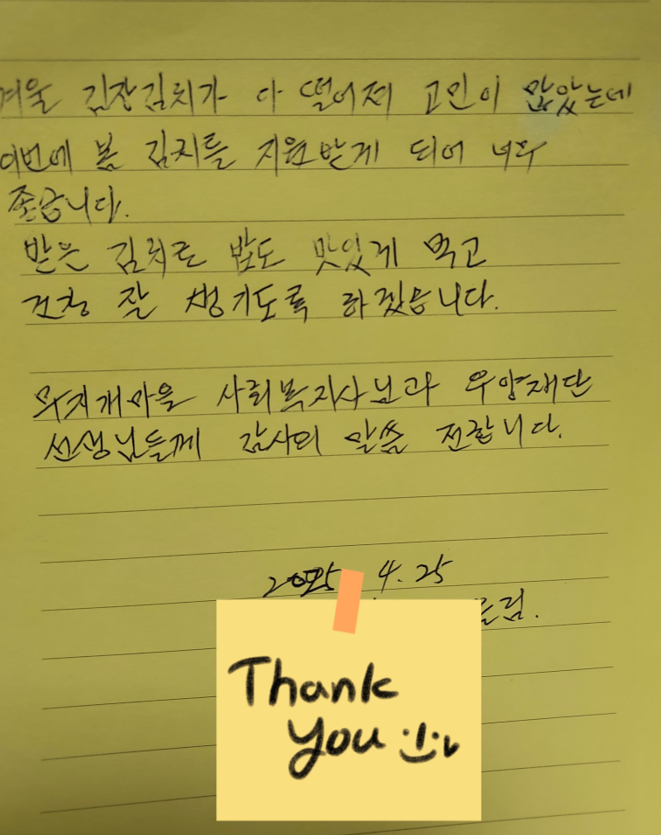 겨울 김장김치가 다 떨어져 고민이 많았는데
이번에 봄 김치를 지원받게 되어 너무
좋습니다.
받은 김치로 밥도 맛있게 먹고
건강 잘 챙기도록 하겠습니다.
무지개마을 사회복지사님과 우양재단
선생님들께 감사의 말씀 전합니다.
2025 4. 25
드림.
Thank
you